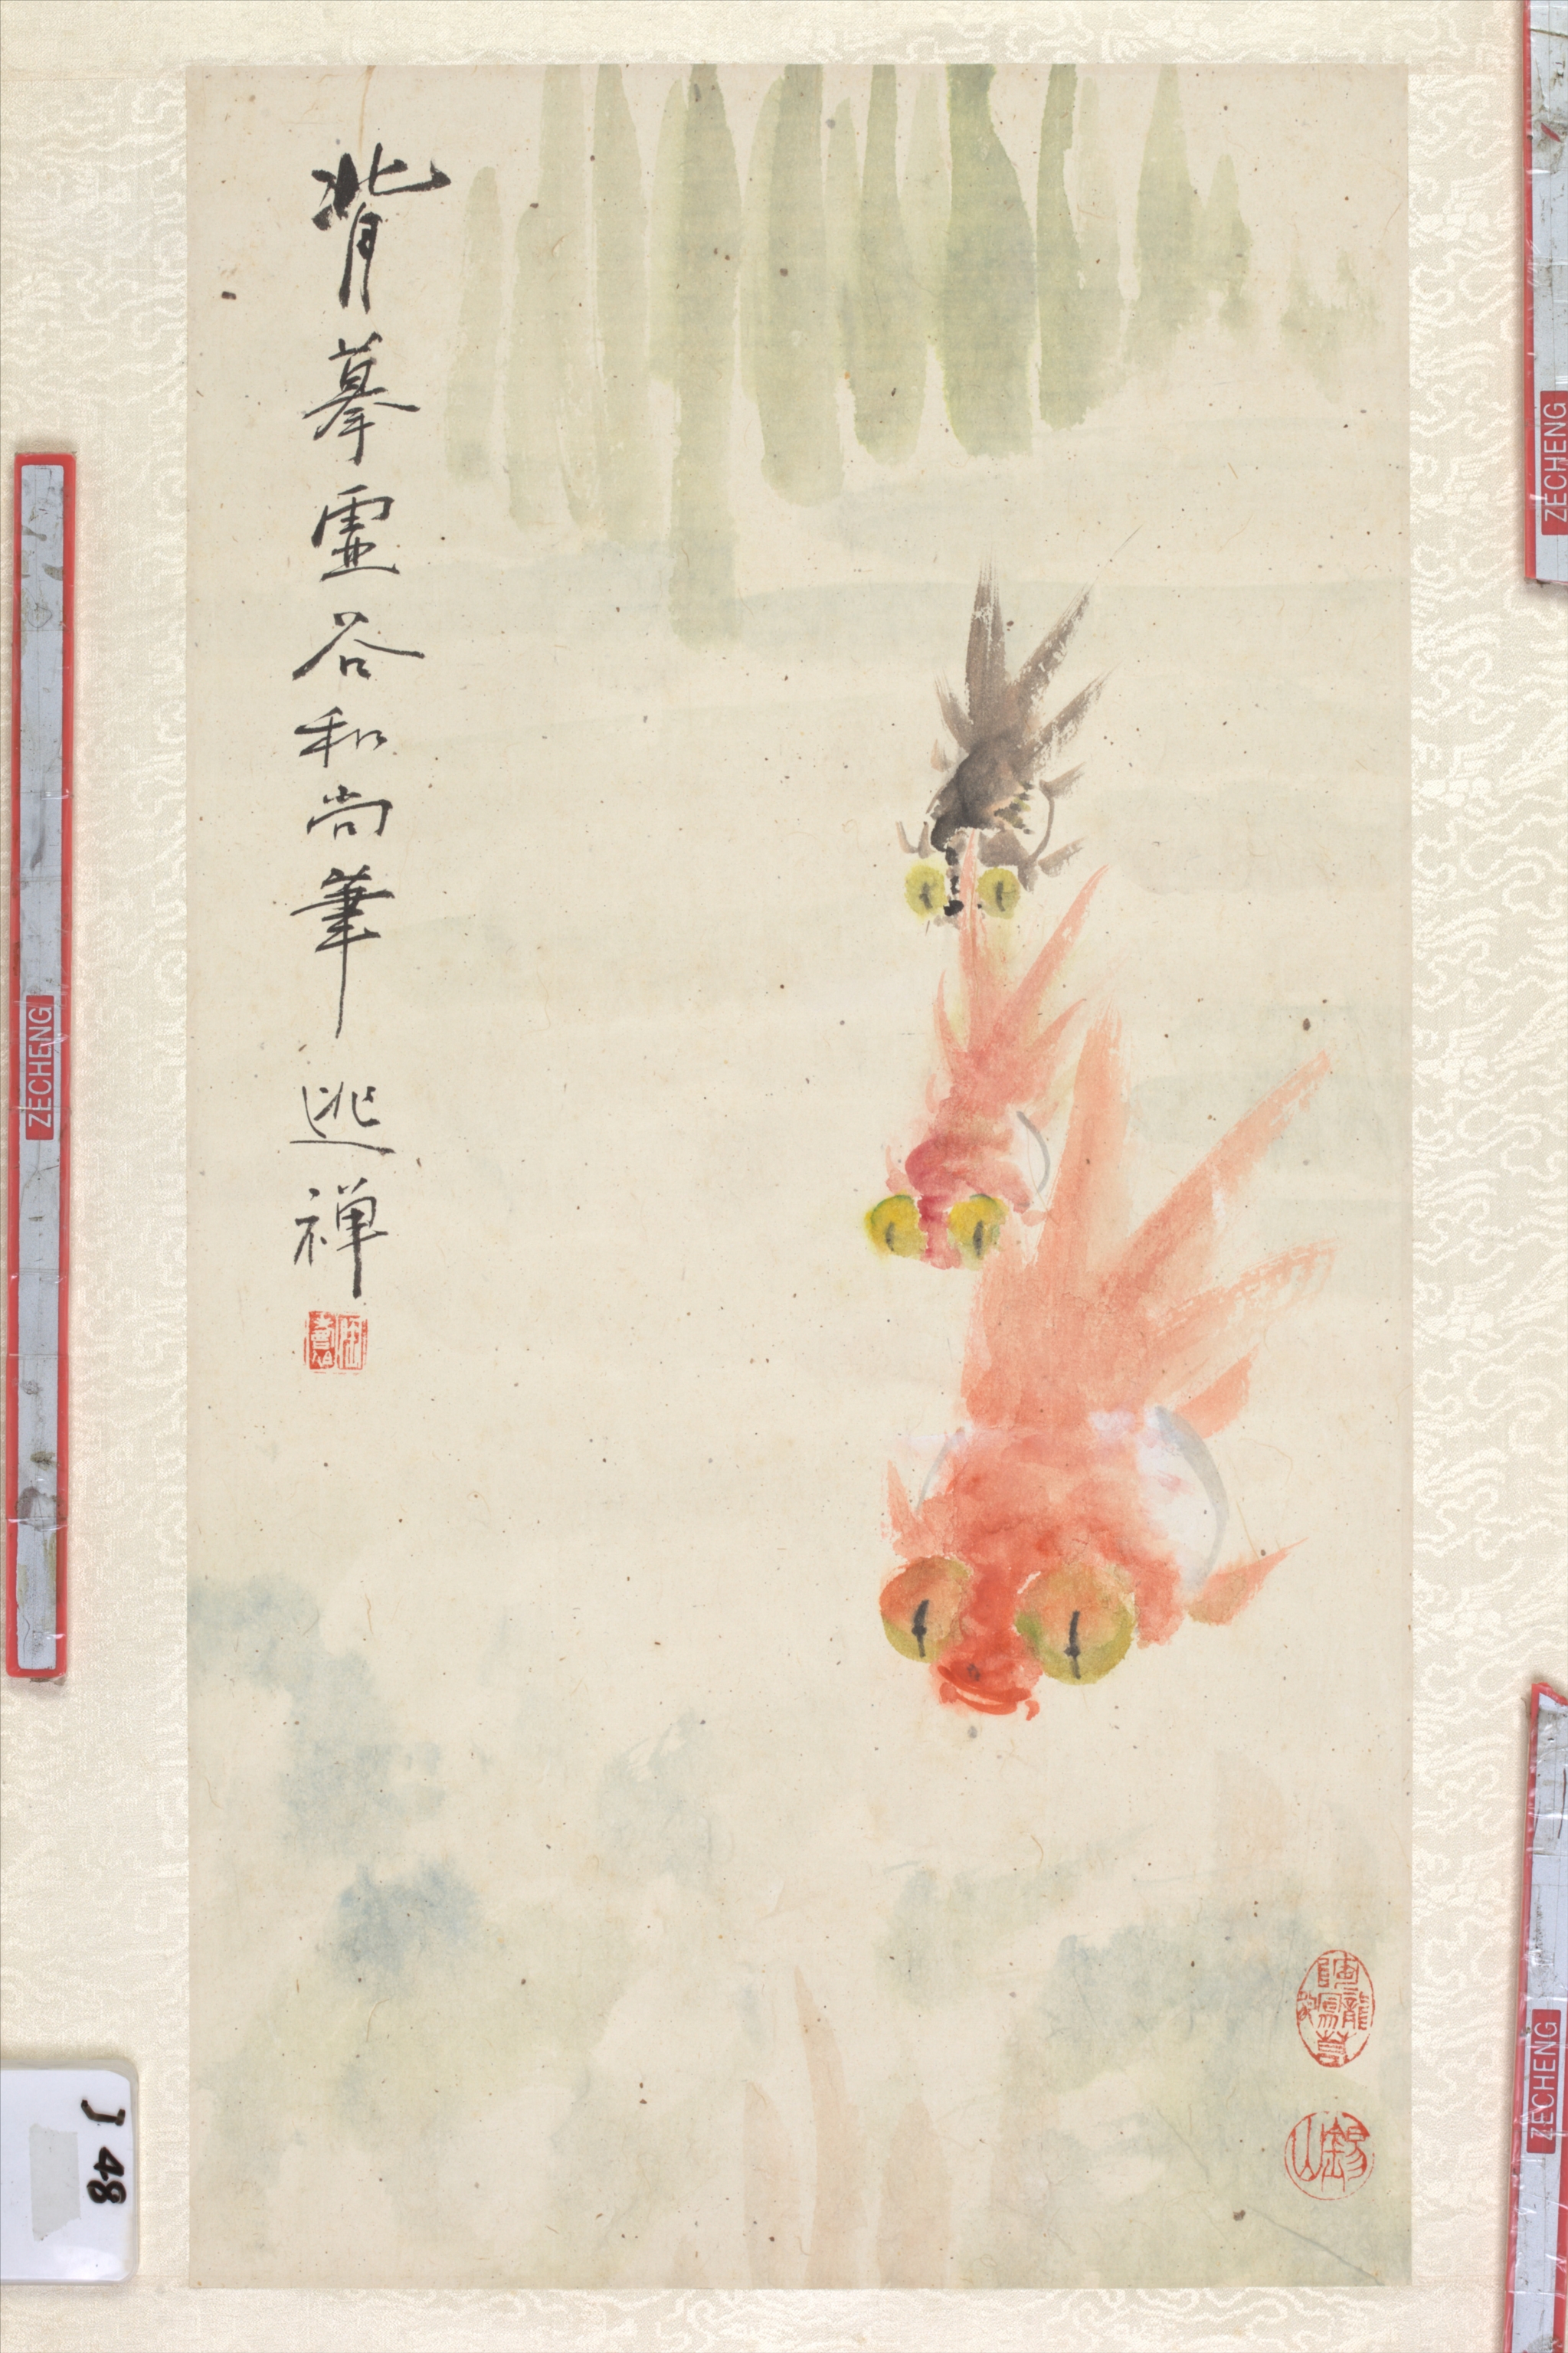 背摹虛谷和尚筆 逃禪
錫山
ZECHENG
ZECHENG
ZECHENG
J 48